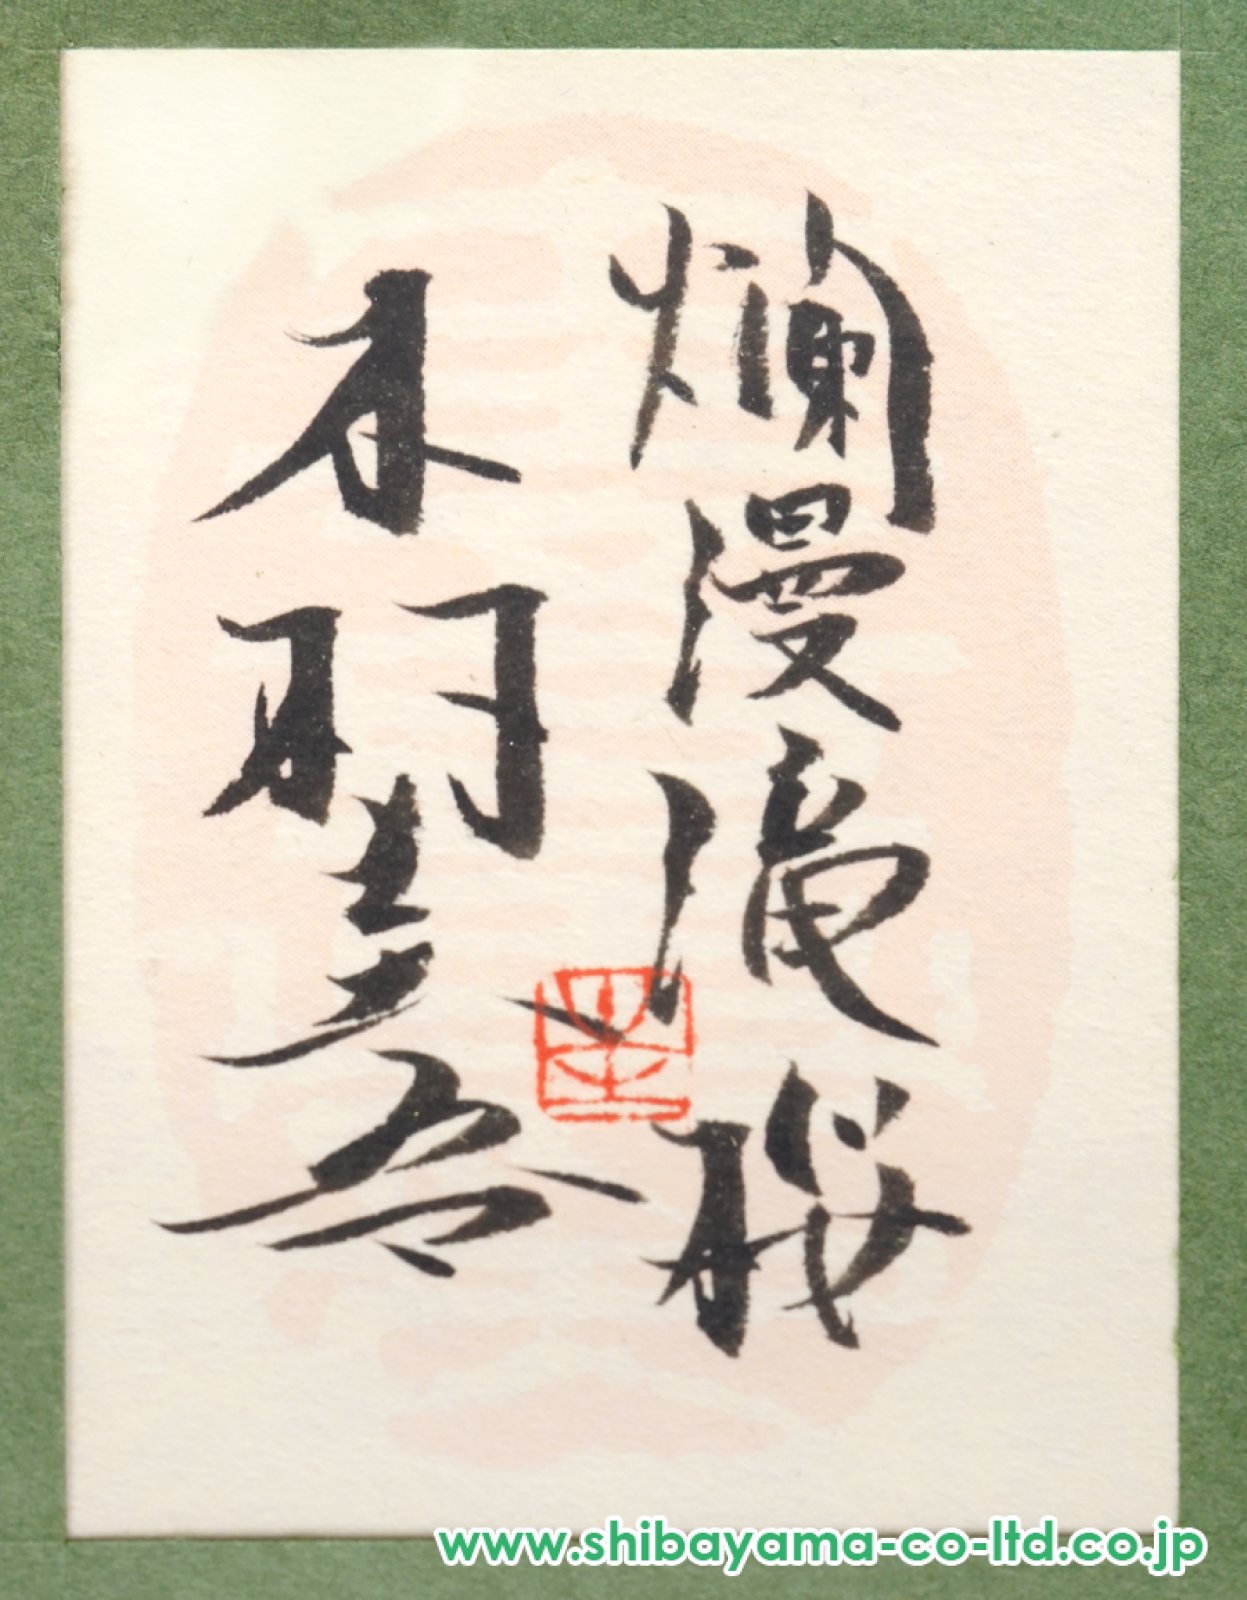 爛漫滝桜
木村圭吾
www.shibayama-co-ltd.co.jp